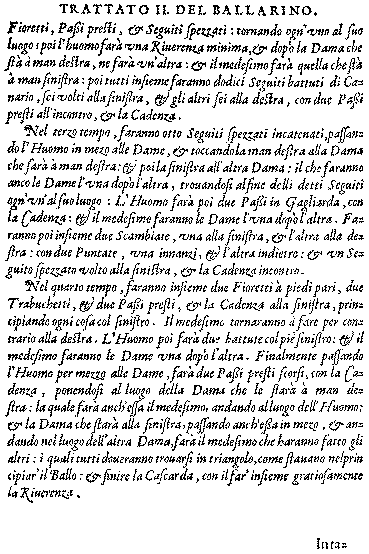 TRATTATO II. DEL BALLARINO.
Fioretti, Paſſi preſti, & Seguiti ſpezzati: tornando ogn'vno al ſuo
luogo: poi l'huomo farà vna Riuerenza minima, & dopò la Dama che
ſtà à man deſtra, ne farà vn'altra: & il medeſimo farà quella che ſtà
à man ſiniſtra: poi tutti inſieme faranno dodici Seguiti battuti di Ca=
nario, ſei volti alla ſiniſtra, & gli altri ſei alla deſtra, con due Paſſi
preſti all'incontro, & la Cadenza.
Nel terzo tempo, faranno otto Seguiti ſpezzati incatenati, paſſan=
do l'Huomo in mezo alle Dame, & toccando la man deſtra alla Dama
che farà à man deſtra: & poi la ſiniſtra all'altra Dama: il che faranno
anco le Dame l'vna dopò l'altra, trouandoſi al fine delli detti Seguiti
ogn'vn'al ſuo luogo: L'Huomo farà poi due Paſſi in Gagliarda, con
la Cadenza: & il medeſimo faranno le Dame l'vna dopò l'altra. Fa=
ranno poi inſieme due Scambiate, vna alla ſiniſtra, & l'altra alla de=
ſtra: con due Puntate, vna innanzi, & l'altra indietro: & vn Se=
guito ſpezzato volto alla ſiniſtra, & la Cadenza incontro.
Nel quarto tempo, faranno inſieme due Fioretti à piedi pari, due
Trabuchetti, & due Paſſi preſti, & la Cadenza alla ſiniſtra, prin=
cipiando ogni coſa col ſiniſtro. Il medeſimo tornaranno à fare per con=
trario alla deſtra. L'Huomo poi farà due battute col piè ſiniſtro: & il
medeſimo faranno le Dame vna dopò l'altra. Finalmente paſſando
l'Huomo per mezzo alle Dame, farà due Paſſi preſti ſcorſi, con la Ca=
denza, ponendoſi al luogo della Dama che le ſtarà à man de=
ſtra: la quale farà anch'eſſa il medeſimo, andando al luogo dell'Huomo:
& la Dama che ſtarà alla ſiniſtra, paſſando anch'eſſa in mezo, & an=
dando nel luogo dell'altra Dama, farà il medeſimo che haranno fatto gli
altri: i quali tutti doueranno trouarſi in triangolo, come ſtauano nel prin
cipiar'il Ballo: & finire la Caſcarda, con il far'inſieme gratioſamente
la Riuerenza.
Inta=